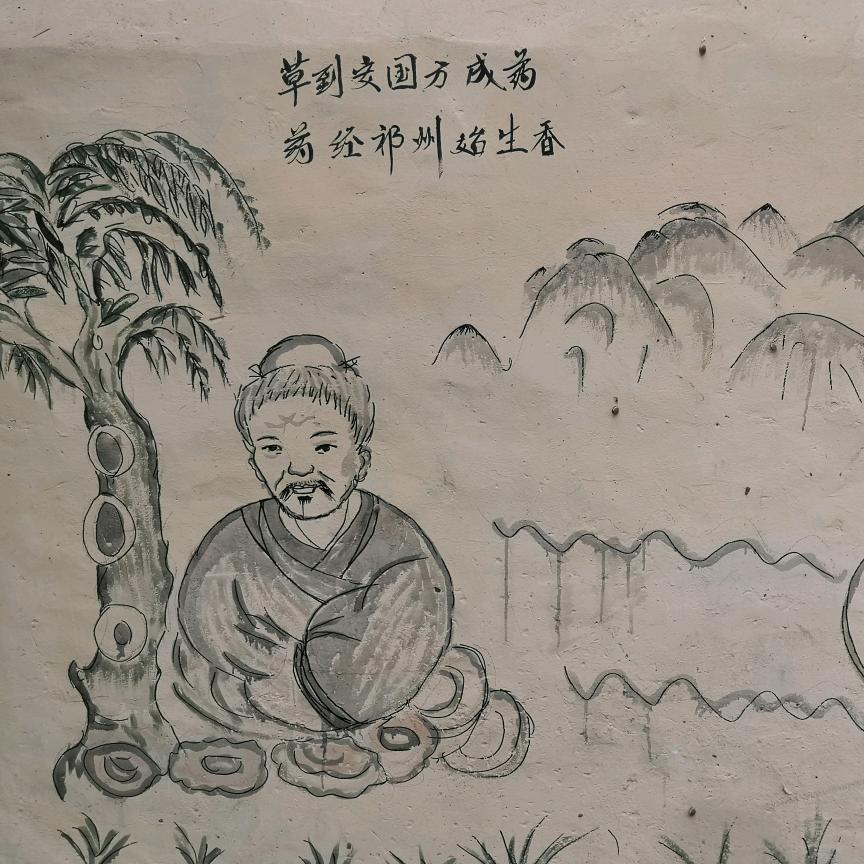 草到安国方成药
药经祁州始生香